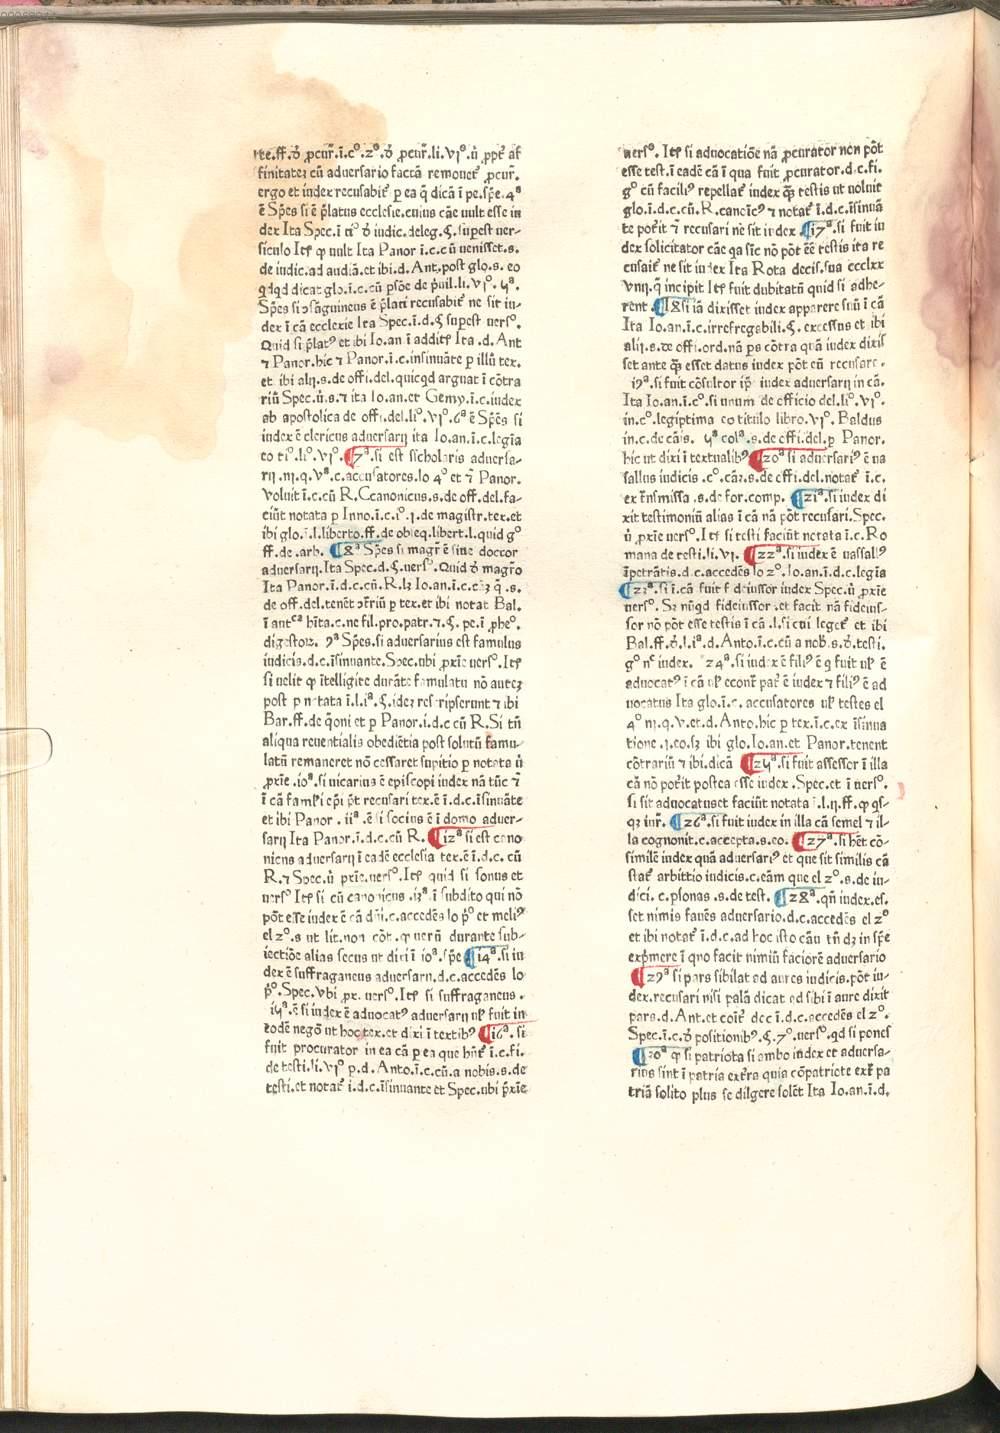 te.ff.ð ꝓcur̃.ī.c°.z°.ð ꝓcur̃.li.vı°.ů ꝓpt̃ af
finitatez cū aduersario factā remouet̃ ꝓcur̃.
ergo et iudex recusabit̃ p ea q̄ dicā ī pe.sp̄e.4ª
ē Sp̄es si ē p̄latus ecclesie.cuius cāe uult esse iu
dex Ita Spec.ī ti° ð iudic.deleg.§.supest uer-
siculo Itē ꝙ uult Ita Panor ī.c.cū uenisset.s.
de iudic.ad audiā.et ibi.d.Ant.post glo.s. eo
qd̄qd dicat glo.ī.c.cū p̄sōe de p̄uil.li.vı°. ꝗª.
Sp̄es si ɔsāguineus ē p̄lati recusabit̃ ne sit iu-
dex ī cā ecclexie Ita Spec.ī.d.§ supest uers°.
Quid si p̄lat⁹ et ibi Io.an ī addit̃ Ita .d. Ant
⁊ Panor.hic ⁊ Panor.ī.c.insinuāte p illū tex.
et ibi alij.s.de offi.del.quicqd arguat ī cōtra
riū Spec.ů.s.⁊ ita Io.an.et Gemy.ī.c.iudex
ab apostolica de offi.del.li°.vı°.6ª ē Sp̄es si
iudex ē clericus aduersarij ita Io.an.ī.c.legīa
eo ti°.li°.vı°.¶7ª.si est scholaris aduersa-
rij .iij.q.vª.c.accusatores.lo 4° et ⁊ Panor.
voluit ī.c.cū R.Canonicus.s.de off.del.fa-
ciūt notata p Inno.ī.c.i°.j.de magistr.tex.et
ibi glo.ī.l.liberto.ff.de obseq.libert.l.quid g°
ff.de .arb. ¶8ª Sp̄es si magr̃ ē siue doctor
aduersarij.Ita Spec.d.§.uers°.Quid ð magr̃o
Ita Panor.ī.d.c.cū.R.lꝫ Io.an.ī.c.cꝫ q̄ .s.
de off.del.tenēt ɔt̃riū p tex.et ibi notat Bal.
ī autᶜª hīta.c.ne fil.pro.patr.⁊.§. pe.ī ꝓhe°.
digestoꝝ. 9ª Sp̄es.si aduersarius est famulus
iudicis.d.c.īsinuante.Spec.ubi ꝓxīe uers°.Itē
si uelit ꝙ ītelligite durāte famulatu nō autez
post p notata ī.l.iª.§.idez rescripserunt ⁊ ibi
Bar.ff.de q̄oni et p Panor.i.d.c cū R.Si tn̄
aliqua reuerētialis obediētia post solutū famu-
latū remaneret nō cessaret suspitio p notata ů
ꝓxīe .io°.si uicarius ē episcopi iudex nā tūc ⁊
ī cā famuli ep̄i p̄t recusari tex.ē ī.d.c.īsinuāte
et ibi Panor . iiª .ē si socius ē ī domo aduer-
sarij Ita Panor.ī.d.c.cū R. ¶12ª si est cano
nicus aduersarij ī eadē ecclesia tex.ē ī.d.c. cū
R.⁊ Spec.ů pxīe.uers°.Itē quid si sonus et
uers° Itē si cū canonicus .i3ª.ī subdito qui nō
pōt esse iudex ē cā dn̄i.c.accedēs lo p̄° et meli⁹
el z°.s ut lit.non cōt.ꝙ uerū durante sub-
iectiōe alias secus ut dixi ī ioª.sp̄e ¶i4ª.si iu
dex ē suffraganeus aduersarij.d.c.accedēs lo
p̄°.Spec.vbi ꝓx. uers°.Itē si suffraganeus .
iꝗª.ē si iudex ē aduocat⁹ aduersarij ul̄ fuit in
eodē negō ut hoc tex.et dixi ī textib⁹ ¶i6ª. si
fuit procurator in ea cā p ea que hn̄t̃ ī.c.fi.
de testi.li.vı° p.d. Anto.ī.c.cū.a nobis.s.de
testi.et notat̃ ī.d.c.īsinuante et Spec.ubi p̄xīe
uers°. Itē si aduocatiōe nā ꝓcurator non pōt
esse test.ī eadē cā ī qua fuit ꝓcurator.d.c.fi.
g° cū facili⁹ repellat̃ iudex ꝙ̄ testis ut uoluit
glo.ī.d.c.cū.R.canōic⁹ ⁊ notat̃ ī.d.c.īsinuā
te poīt ⁊ recusari ne sit iudex .¶i7ª.si fuit iu
dex solicitator cāe qa sīc nō pōt eē testis ita re
cusait̃ ne sit iudex Ita Rota decis.sua ccclxx
vııj.q̄ incipit Itē fuit dubitatū quid si adhe-
rent .¶18si iā dixisset iudex apparere suū ī cā
Ita Io.an.ī.c.irrefregabili.§. excessus et ibi
alij.s.de offi.ord.nā p̄s cōtra quā iudex dixis
set ante ꝙ̄ esset datus iudex pōt cū recusare.
i9ª.si fuit cōsultor ip̄i iudex aduersarij in cā.
Ita Io.an.ī.c°.si unum de officio del.li°.vı°.
in.c°.legiptima eo titulo libro.vı°. Baldus
in.c.de cāis. ꝗª colª.s.de offi.del.p Panor.
hic ut dixi ī textualib⁹ ¶20ª si aduersari⁹ ē ua
sallus iudicis .c°.cāꝫ.s.de offi.del.notat̃ ī.c.
ex t̄nsmissa .s.de for.comp. ¶21ª.si iudex di
xit testimoniū alias ī cā nā pōt recusari.Spec.
ů ꝓxīe uers°. Itē si testi faciūt notata ī.c.Ro
mana de testi.li.vı. ¶22ª.si iudex ē uassall⁹
īpetrātis.d.c.accedēs lo z°.Io.an.ī.d.c.legīa
¶23ª.si ī.cā fuit fideiussor iudex Spec.ů ꝓxīe
uers°. Sꝫ nūqd fideiussor .et facit nā fideius-
sor nō pōt esse testis ī cā .l.si cui leget̃ et ibi
Bal.ff.ð.l.iª.d.Anto.ī.c.cū a nob.s.ð.testi.
g° nᶜ iudex. 24ª.si iudex ē fili⁹ ē q̄ fuit ul̄ ē
aduocat⁹ ī cā ul̄ econt̃ pat̃ ē iudex ⁊ fili⁹ ē ad
uocatus Ita glo.ī.c. accusatores ul̄ testes el
4° iij.q.v.et.d.Anto.hic p tex.ī.c.ex īsinua
tione .j.eo.sꝫ ibi glo.Io.an.et Panor.tenent
cōtrariū ⁊ ibi.dicā ¶2ꝗª.si fuit assessor ī illa
cā nō poīt postea esse iudex .Spec.et ī uers°.
si sit aduocatus et faciūt notata ī.l.ij.ff.ꝙ qs-
qꝫ iur̃. ¶26ª.si fuit iudex in illa cā semel ⁊ il-
la cognouit.c.accepta.s.eo. ¶27ª.si hēt cō-
similē iudex quā aduersari⁹ et que sit similis cā
stat̃ arbittio iudicis.c.eām que el z°.s.de iu-
dici. c.p̄sonas .s.de test. ¶28ª.qn̄ iudex.es.
set nimis fauēs aduersario.d.c.accedēs el z°
et ibi notat̃ ī.d.c.ad hoc isto cāu tn̄ dꝫ in sp̄e
exp̄mere ī quo facit nimiū faciorē aduersario
¶29ª si pars sibilat ad aures iudicis.pōt iu-
dex.recusari nisi palā dicat qd sibi ī aure dixit
pars.d.Ant.et coīt̃ doc ī.d.c.accedēs el z°.
Spec.ī.c.ð positionib⁹.§.7°.uers°.qd si ponēs
¶30ª ꝙ si patriota si ambo iudex et aduersa-
rius sint ī patria ext̃ra quia cōpatriote ext̃ pa
triā solito plus se dilgere solēt Ita Io.an.ī.d.